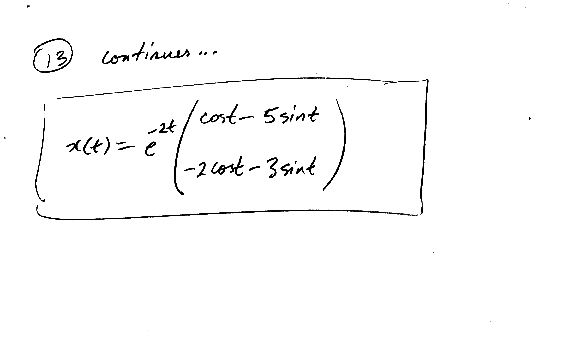 13 continues...
x(t) = e^{-2t} ( cost - 5 sint
-2 cost - 3 sint )